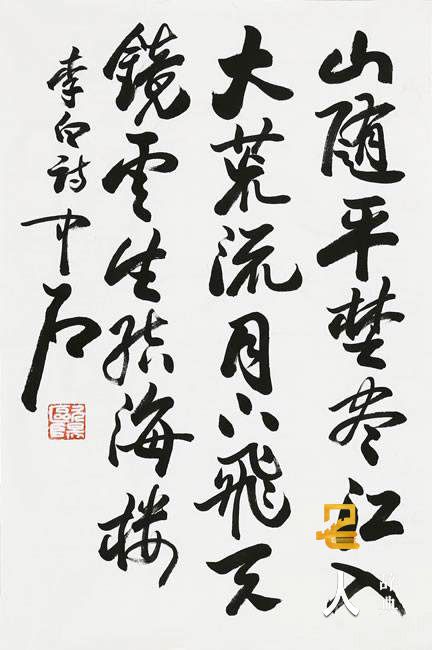 山随平埜尽江入
大荒流月下飛天
鏡雲生结海楼
李白诗中石
人